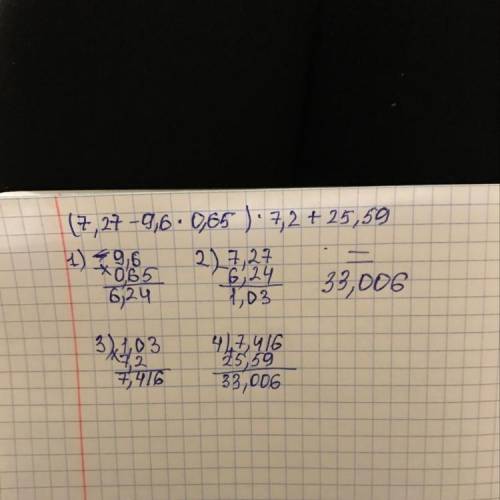 (7,27 - 9,6 · 0,65) · 7,2 + 25,59
=
33,006
1) 9,6
× 0,65
6,24
2) 7,27
- 6,24
1,03
3) 1,03
× 7,2
7,416
4) 7,416
25,59
33,006